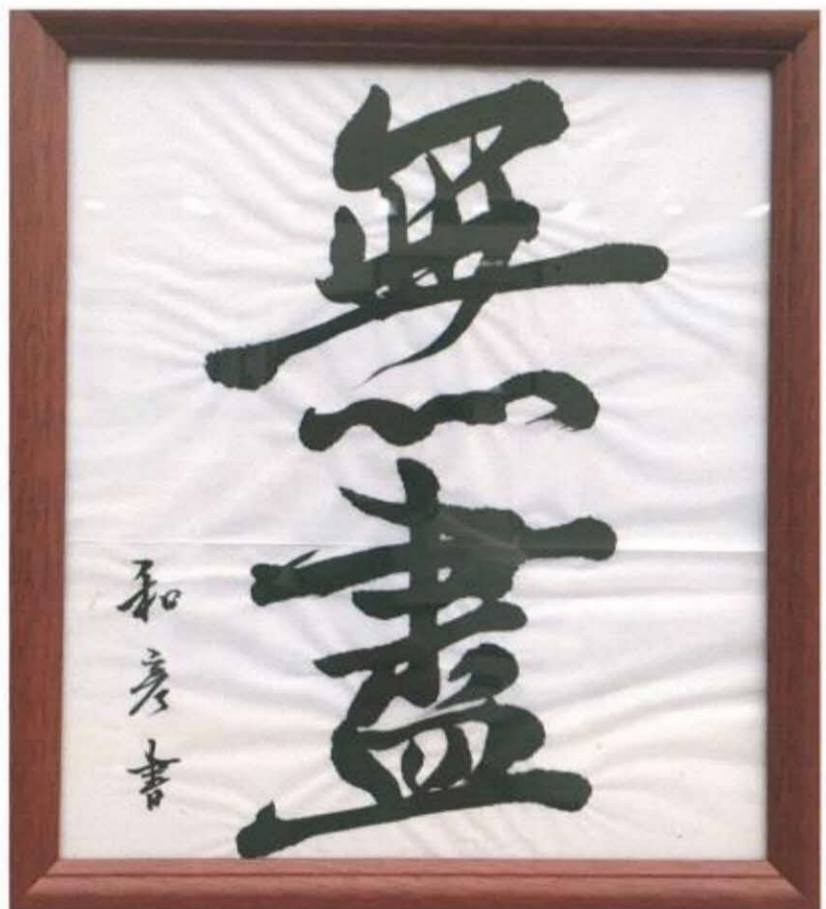 無盡
和彦書